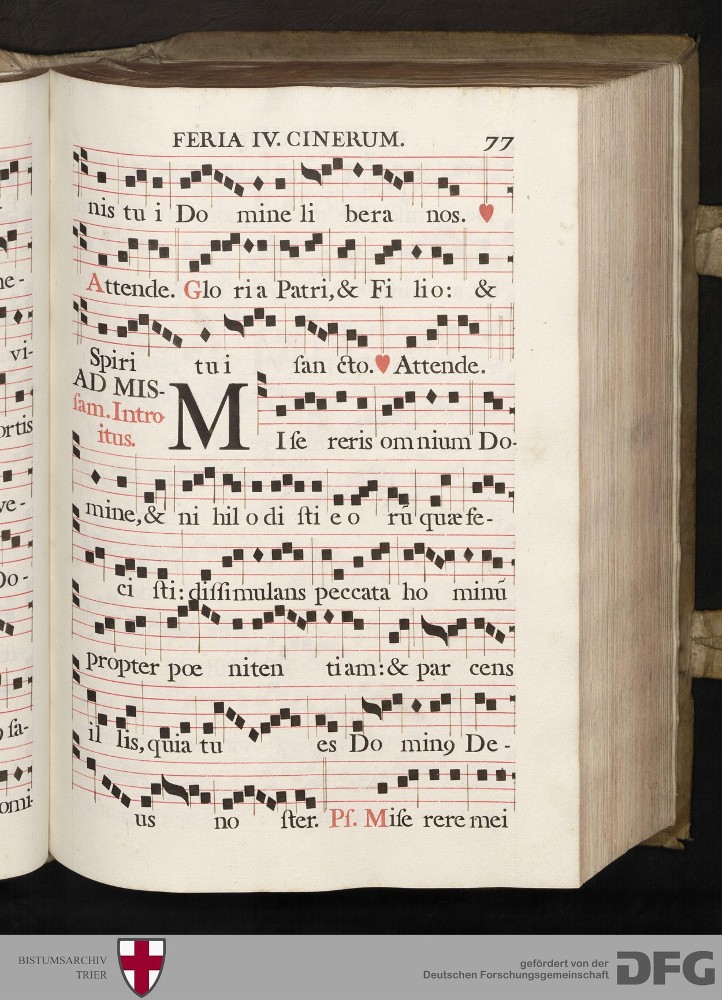 FERIA IV. CINERUM. 77
nis tu i Do mine li bera nos. ♥
Attende. Glo ri a Patri, & Fi lio: &
Spiri tu i ſan cto. ♥ Attende.
AD MIS-
ſam. Intro-
itus.
M I ſe reris omnium Do-
mine, & ni hil o di ſti e o rũ quæ fe-
ci ſti: diſſimulans peccata ho minũ
propter pœ niten tiam: & par cens
il lis, quia tu es Do minꝰ De-
us no ſter. Pſ. Miſe rere mei
ne-
vi-
ortis
ve-
Do-
ꝰ ſa-
omi-
BISTUMSARCHIV
TRIER
gefördert von der
Deutschen Forschungsgemeinschaft
DFG